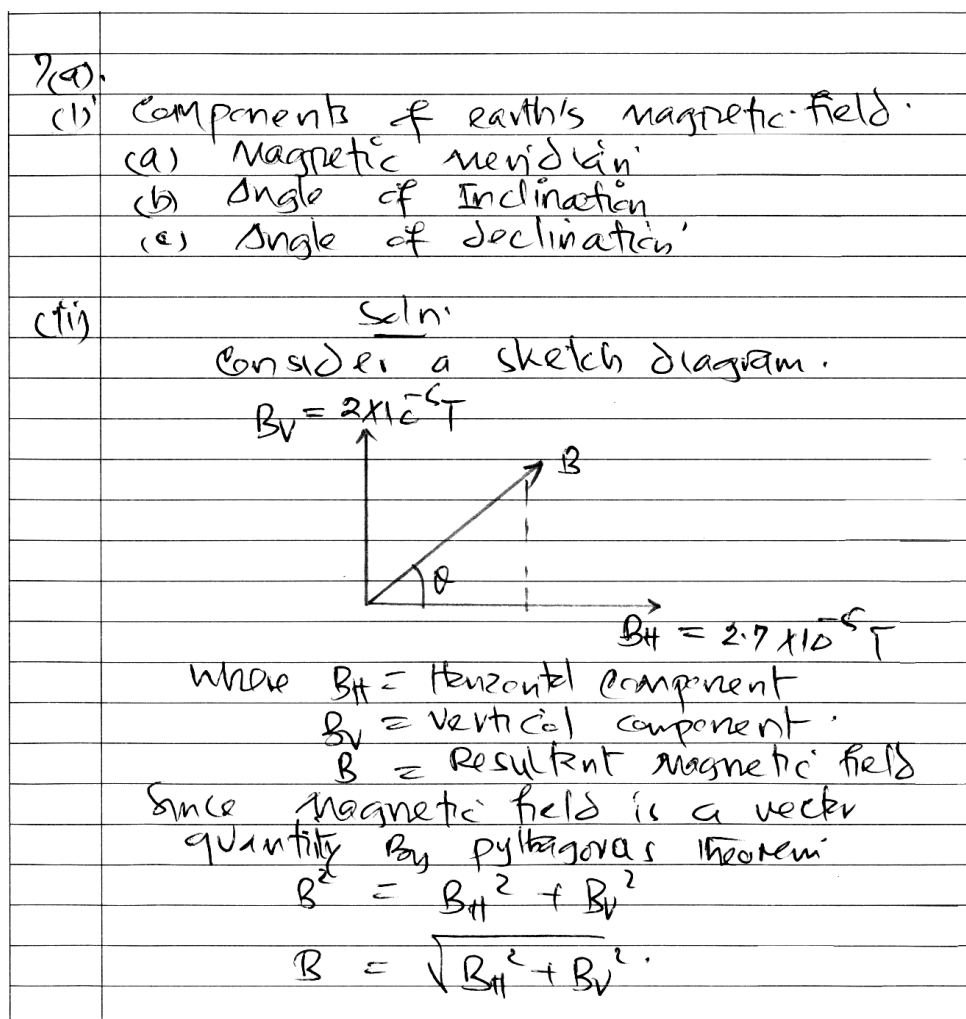 7(a).
(i) Components of earth's magnetic field.
(a) Magnetic meridian
(b) Angle of Inclination
(c) Angle of declination
(ii) Soln.
Consider a sketch diagram.
Bv = 2×10⁻⁵T
B
θ
BH = 2.7 ×10⁻⁵ T
where BH = Horizontal component
Bv = vertical component.
B = Resultant magnetic field
Since magnetic field is a vector
quantity By pythagoras theorem
B² = BH² + Bv²
B = √BH² + Bv².